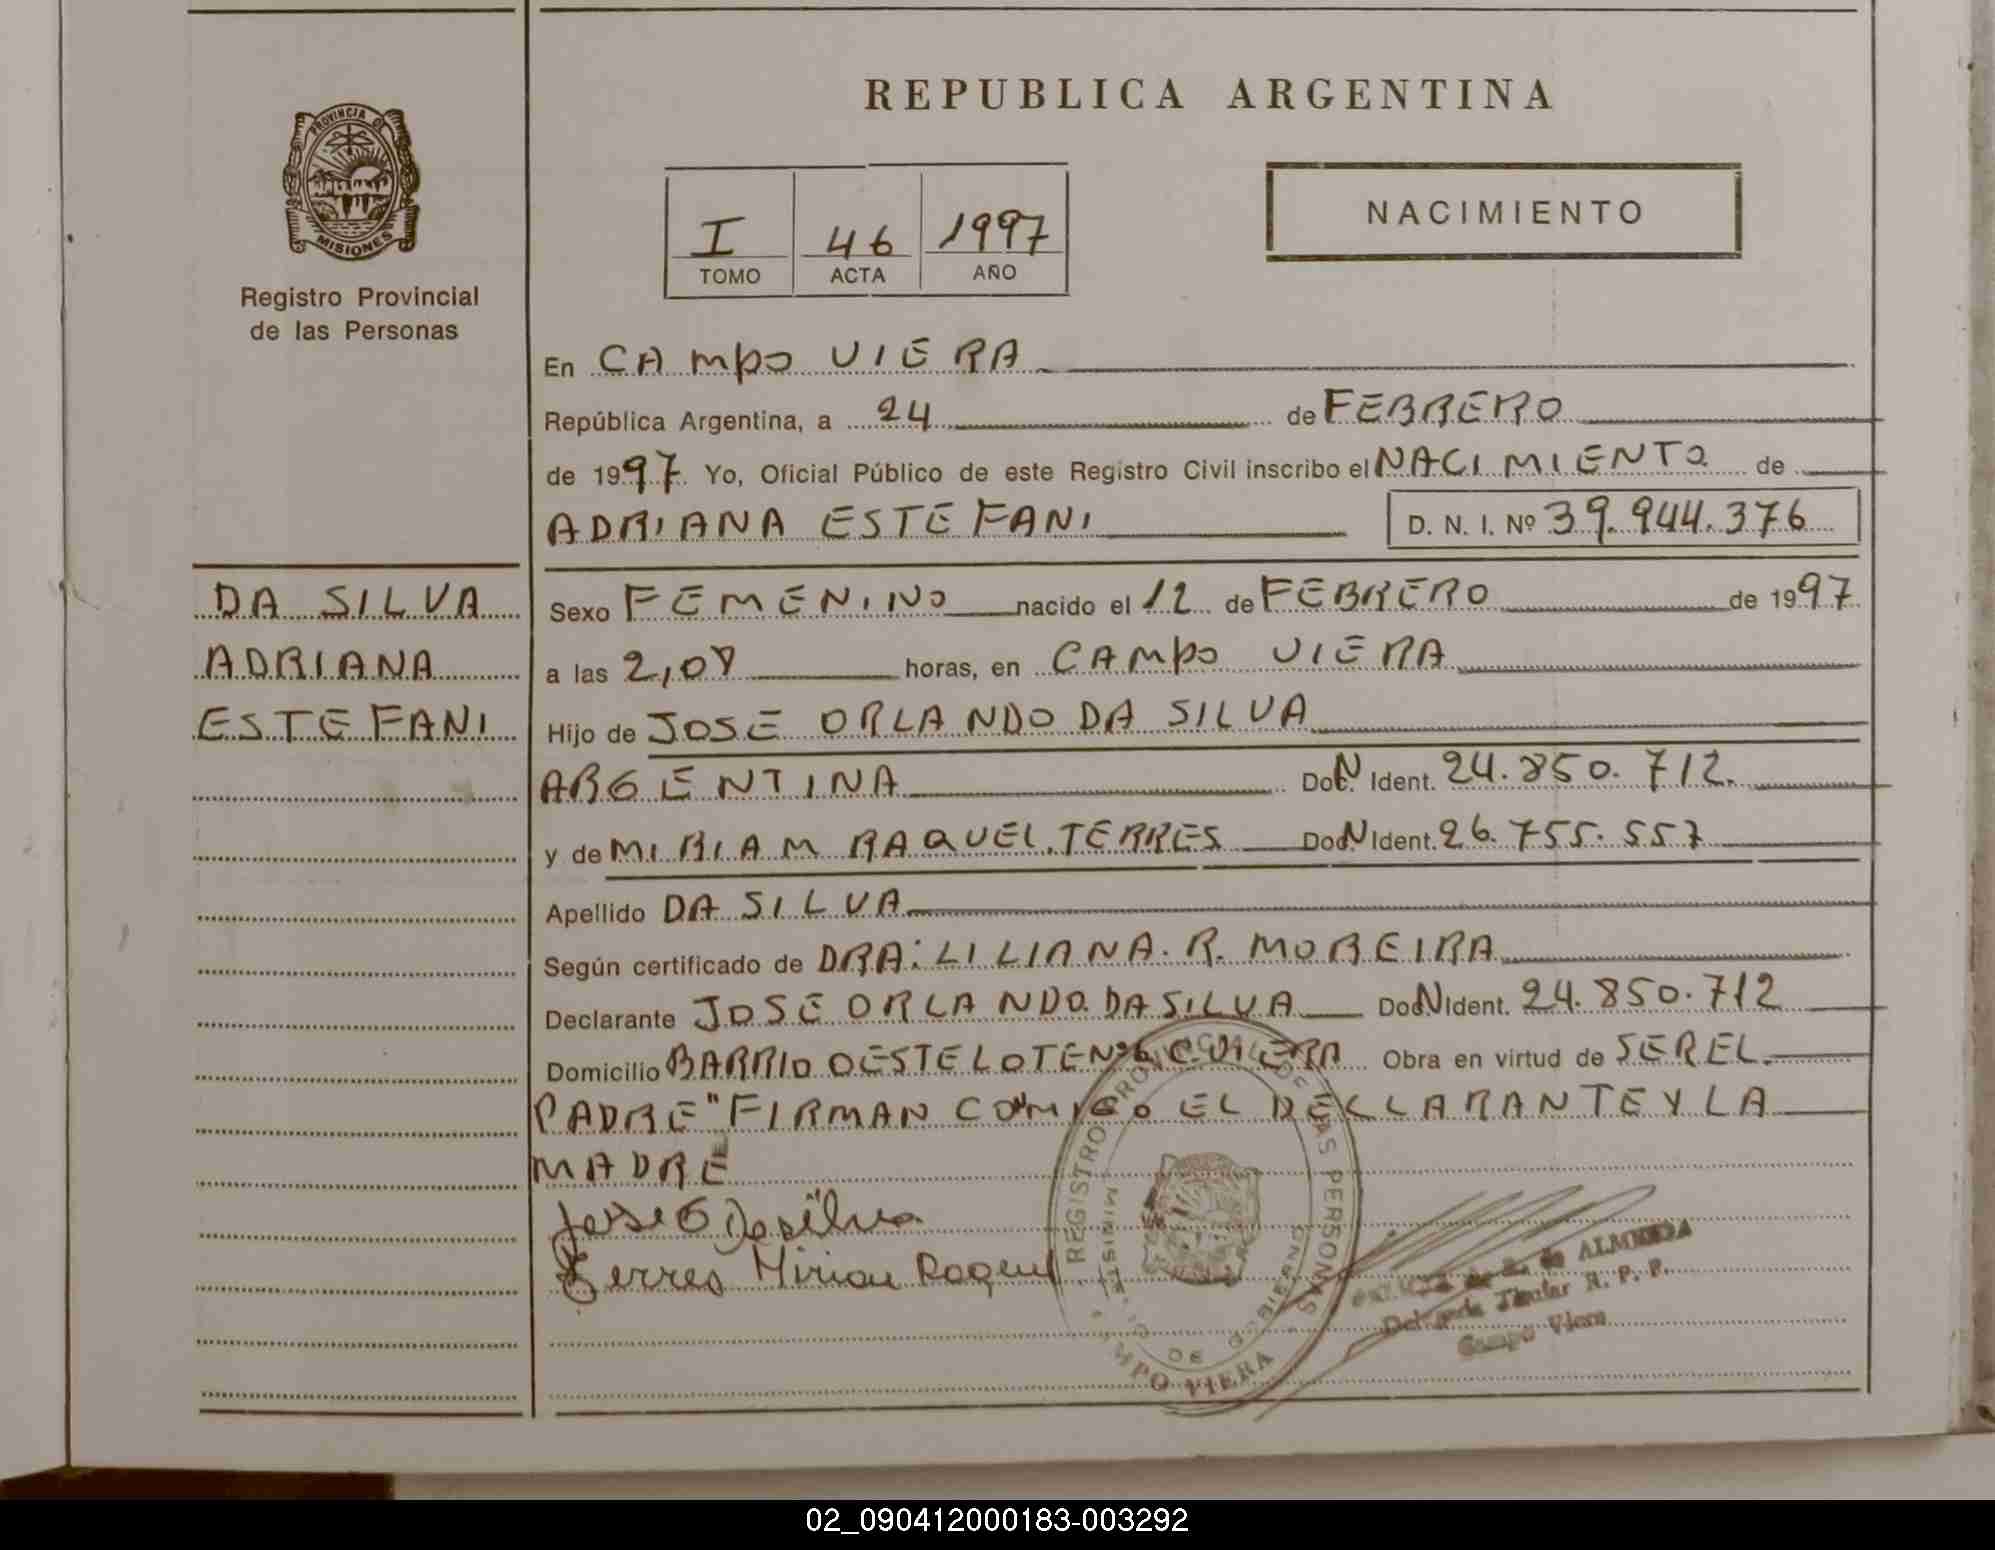 REPUBLICA ARGENTINA
PROVINCIA DE
MISIONES
Registro Provincial
de las Personas
I 46 1997
TOMO ACTA AÑO
NACIMIENTO
En CAMPO VIERA
República Argentina, a 24 de FEBRERO
de 1997 Yo, Oficial Público de este Registro Civil inscribo el NACIMIENTO de
ADRIANA ESTEFANI D. N. I. Nº 39.944.376
DA SILVA
ADRIANA
ESTEFANI
Sexo FEMENINO nacido el 12 de FEBRERO de 1997
a las horas, en CAMPO VIERA
Hijo de JOSE ORLANDO DA SILVA
ARGENTINA Doc. N Ident. 24.850.712.
y de MIRIAM RAQUEL TERRES Doc. N Ident. 26.755.557
Apellido DA SILVA
Según certificado de DRA: LILIANA. R. MOREIRA
Declarante JOSE ORLANDO DA SILVA Doc. N Ident. 24.850.712
Domicilio BARRIO OESTE LOTE Nº6 C. VIERA Obra en virtud de SER EL
PADRE" FIRMAN CONMIGO EL DECLARANTE Y LA
MADRE"
Jose O Dasilva
Terres Miriam Raquel
REGISTRO PROVINCIAL DE LAS PERSONAS
MINISTERIO DE GOBIERNO
CAMPO VIERA
de ALMEIDA
Delegada Titular R. P. P.
Campo Viera
02_090412000183-003292